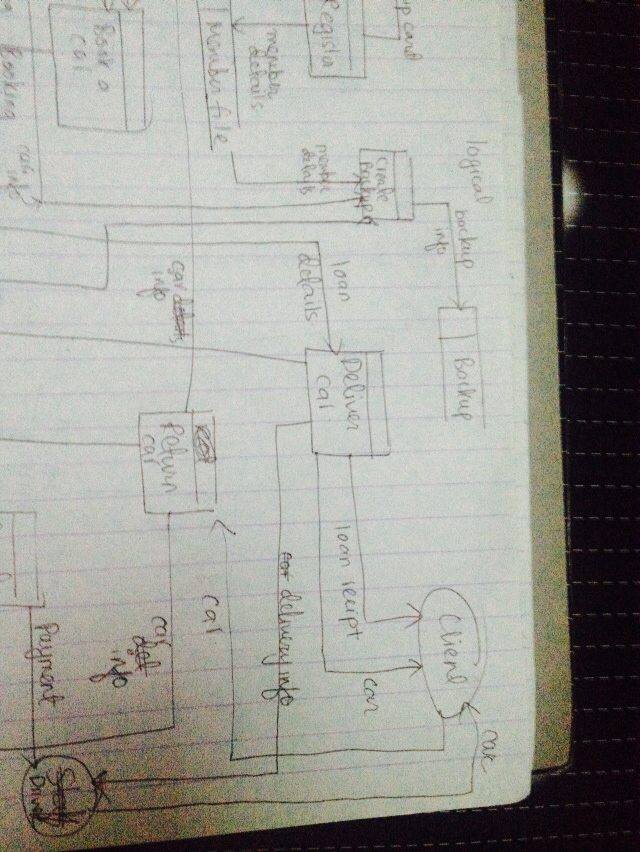 logical
backup
info
Backup
Client
car
up card
Create
Backup
Register
member
details
member
details
Member file
loan
details
Deliver
car
loan recipt
car
delivery info
car
car
info
Return
car
car
info
Book a
car
Booking
car
info
Payment
Driver